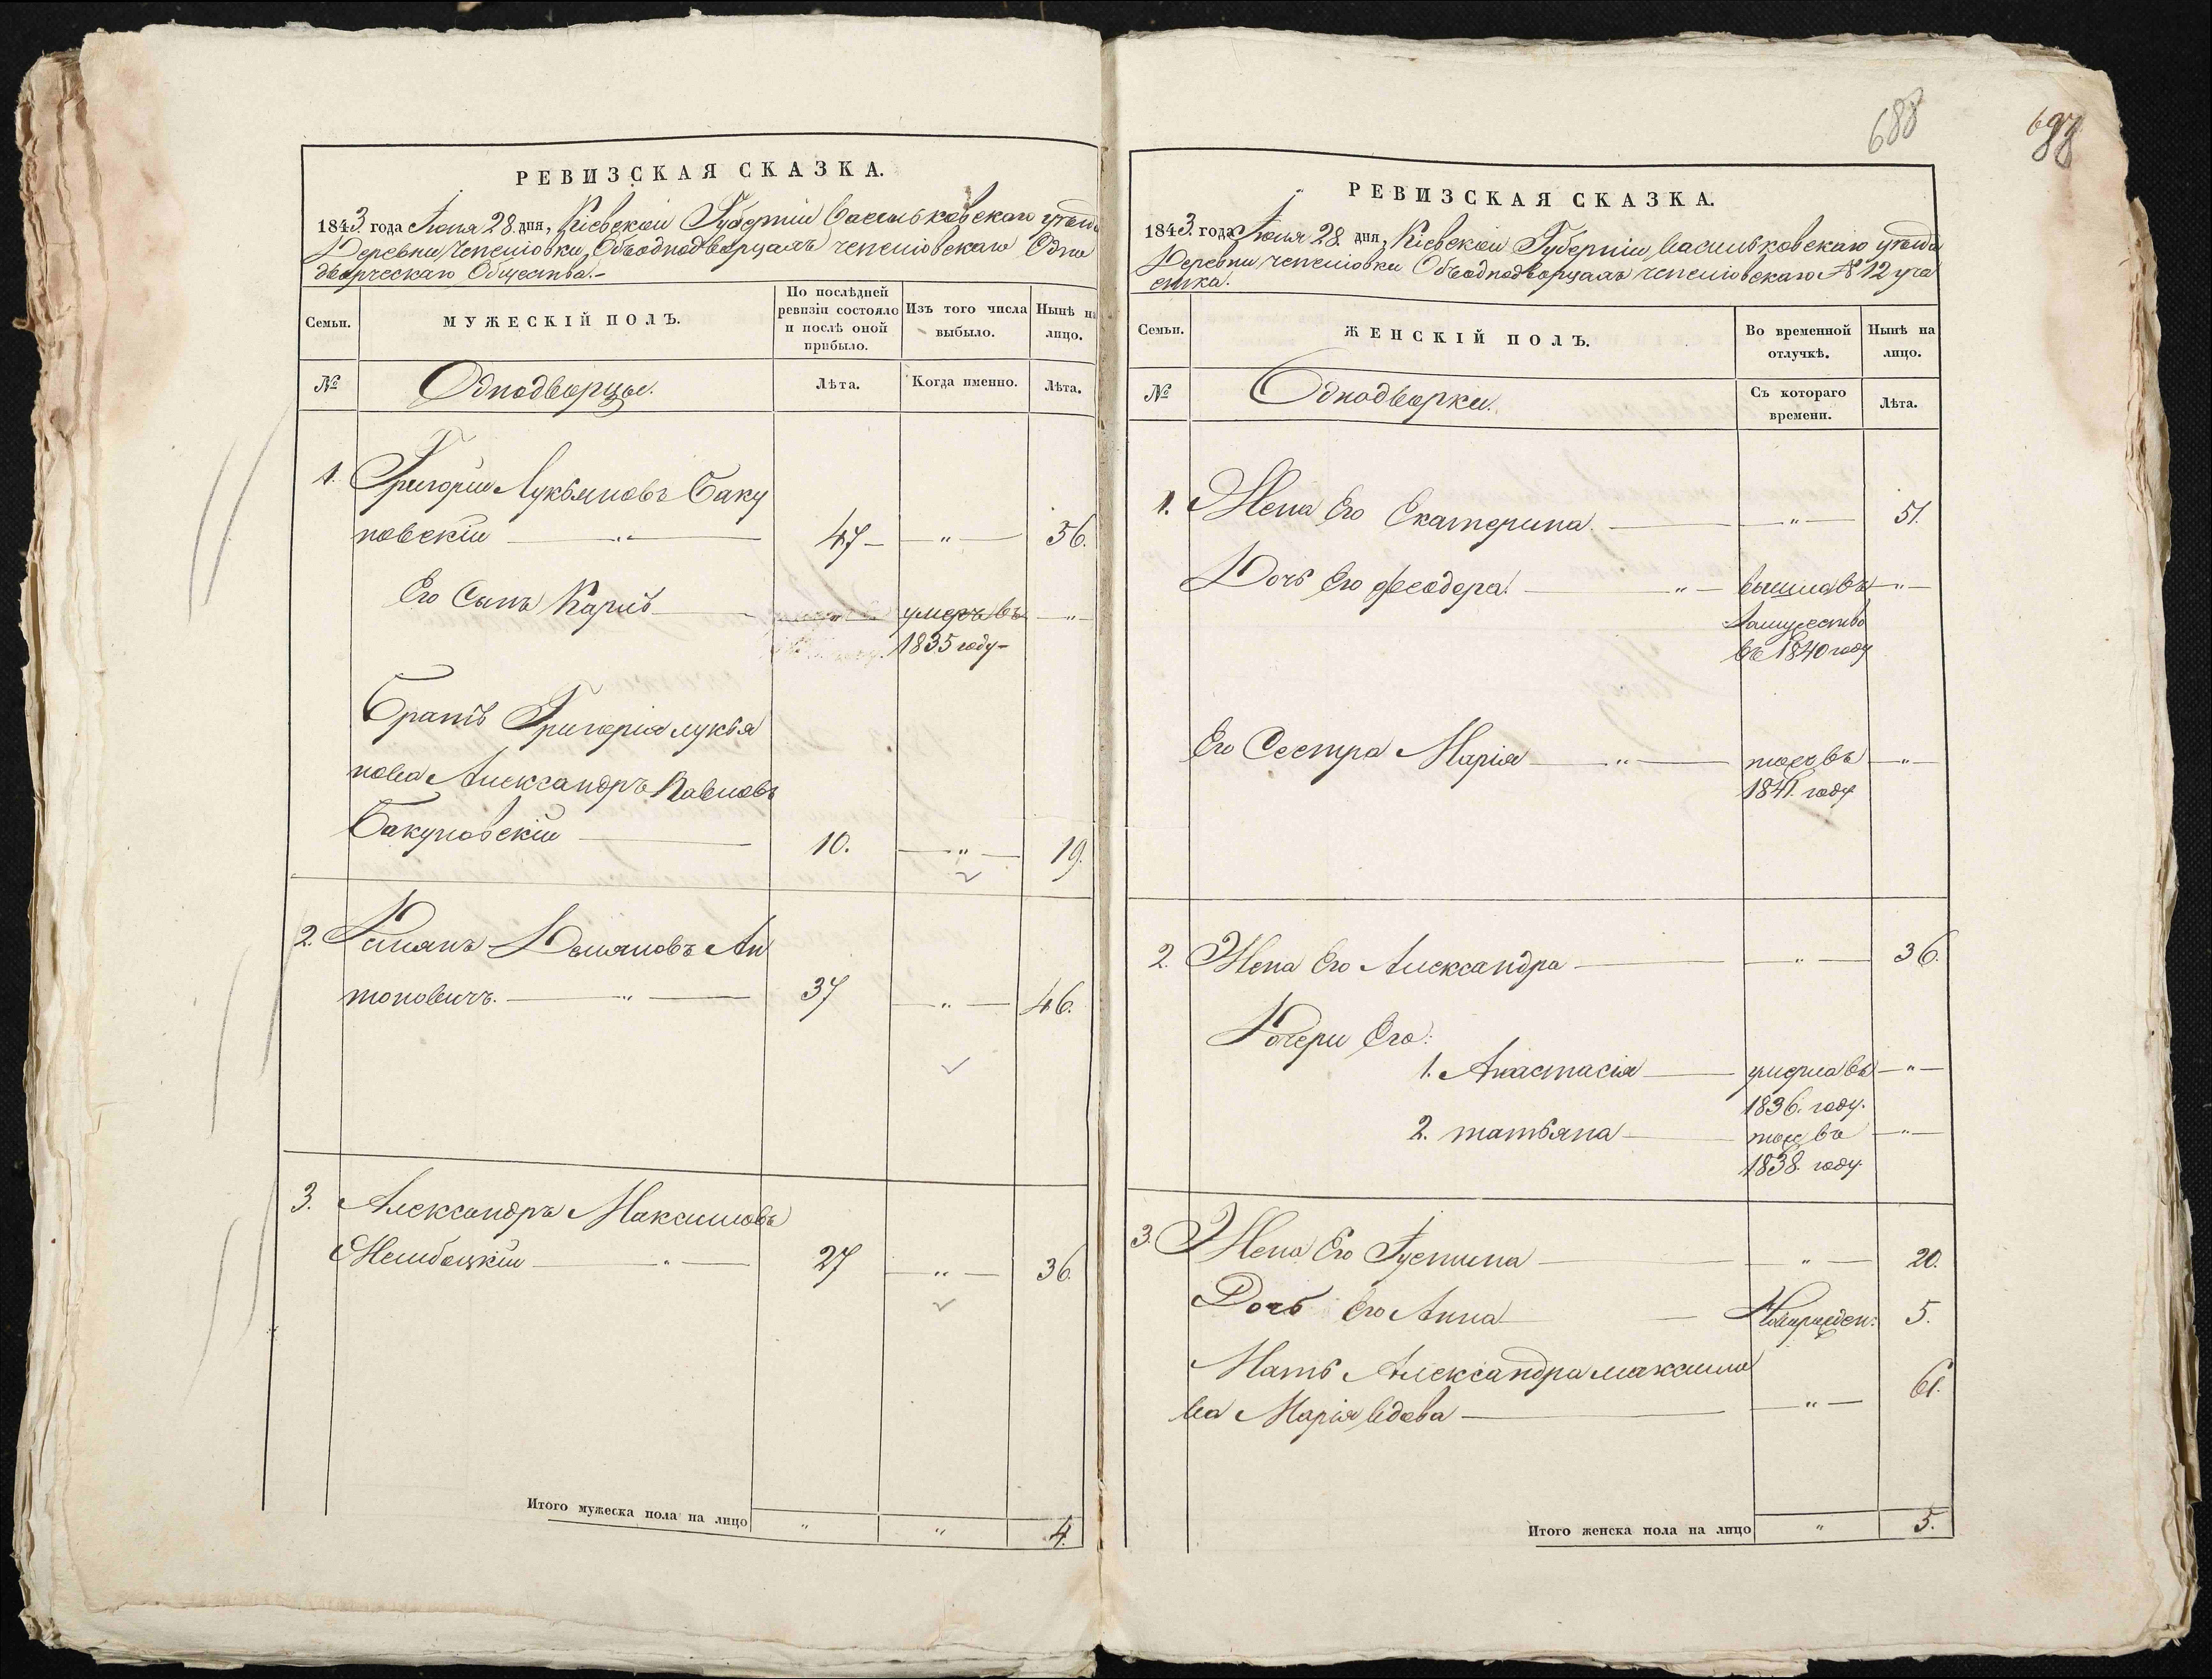 РЕВИЗСКАЯ СКАЗКА.
1843. года Іюля 28. дня, Кіевской Губерніи Васильковскаго уѣзда
Деревни Чепелювки, Объ однодворцахъ чепелювскаго Одно
дворческаго Общества.-
Семьи.
МУЖЕСКІЙ ПОЛЪ.
По послѣдней ревизіи состояло и послѣ оной прибыло.
Изъ того числа выбыло.
Нынѣ на лицо.
№
Однодворцы.
Лѣта.
Когда именно.
Лѣта.
1. Григорій Лукьяновъ Баку
новскій — " — 47 — " — 56.
Его Сынъ Карпъ — умеръ въ — " —
1835 году -
Братъ Григорія лукья
нова Александръ Павловъ
Бакуновскій — 10. — " — 19.
2. Демянъ Демяновъ Ан
тоновичъ. — " — 37 — " — 46.
3. Александръ Максимовъ
— " — 27 — " — 36.
Итого мужеска пола на лицо " " 4.
688
РЕВИЗСКАЯ СКАЗКА.
1843. года Іюля 28. дня, Кіевской Губерніи, васильковскаго уѣзда
Деревни чепелювки Объ однодворцахъ чепелювскаго № 12 уча
стка.
Семьи.
ЖЕНСКІЙ ПОЛЪ.
Во временной отлучкѣ.
Нынѣ на лицо.
№
Однодворки.
Съ котораго времени.
Лѣта.
1. Жена Его Екатерина — " — 51.
Дочь Его Феодора — " — вышла въ — " —
Замужество
въ 1840 году
Его Сестра Марія — " — тожъ въ — " —
1841. году
2. Жена Его Александра — " — 36.
Дочери Его:
1. Анастасія — умерла въ — " —
1836. году.
2. татьяна — тож въ — " —
1838. году.
3. Жена Его Густина — " — 20.
Дочь Его Анна — Новорожден: 5.
Мать Александра максимо
ва Марія вдова — " — 61.
Итого женска пола на лицо " 5.